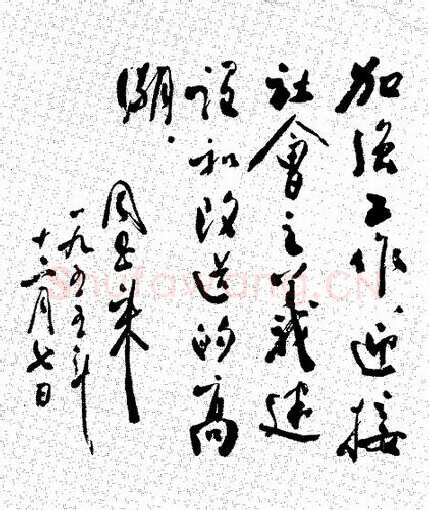 加强工作，迎接
社會主義建
設和改造的高
潮．
周恩来
一九五五年
十二月七日
Shufawang.CN